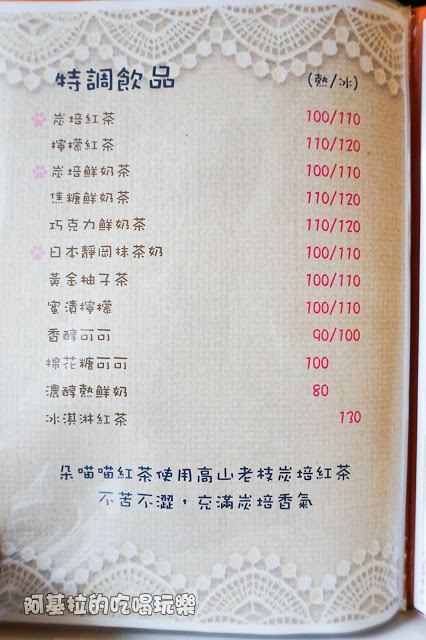 特調飲品 (熱/冰)
炭培紅茶 100/110
檸檬紅茶 110/120
炭培鮮奶茶 100/110
焦糖鮮奶茶 110/120
巧克力鮮奶茶 110/120
日本靜岡抹茶奶 100/110
黃金柚子茶 100/110
蜜漬檸檬 100/110
香醇可可 90/100
棉花糖可可 100
濃醇熱鮮奶 80
冰淇淋紅茶 130
朵喵喵紅茶使用高山老枝炭培紅茶
不苦不澀，充滿炭培香氣
阿基拉的吃喝玩樂